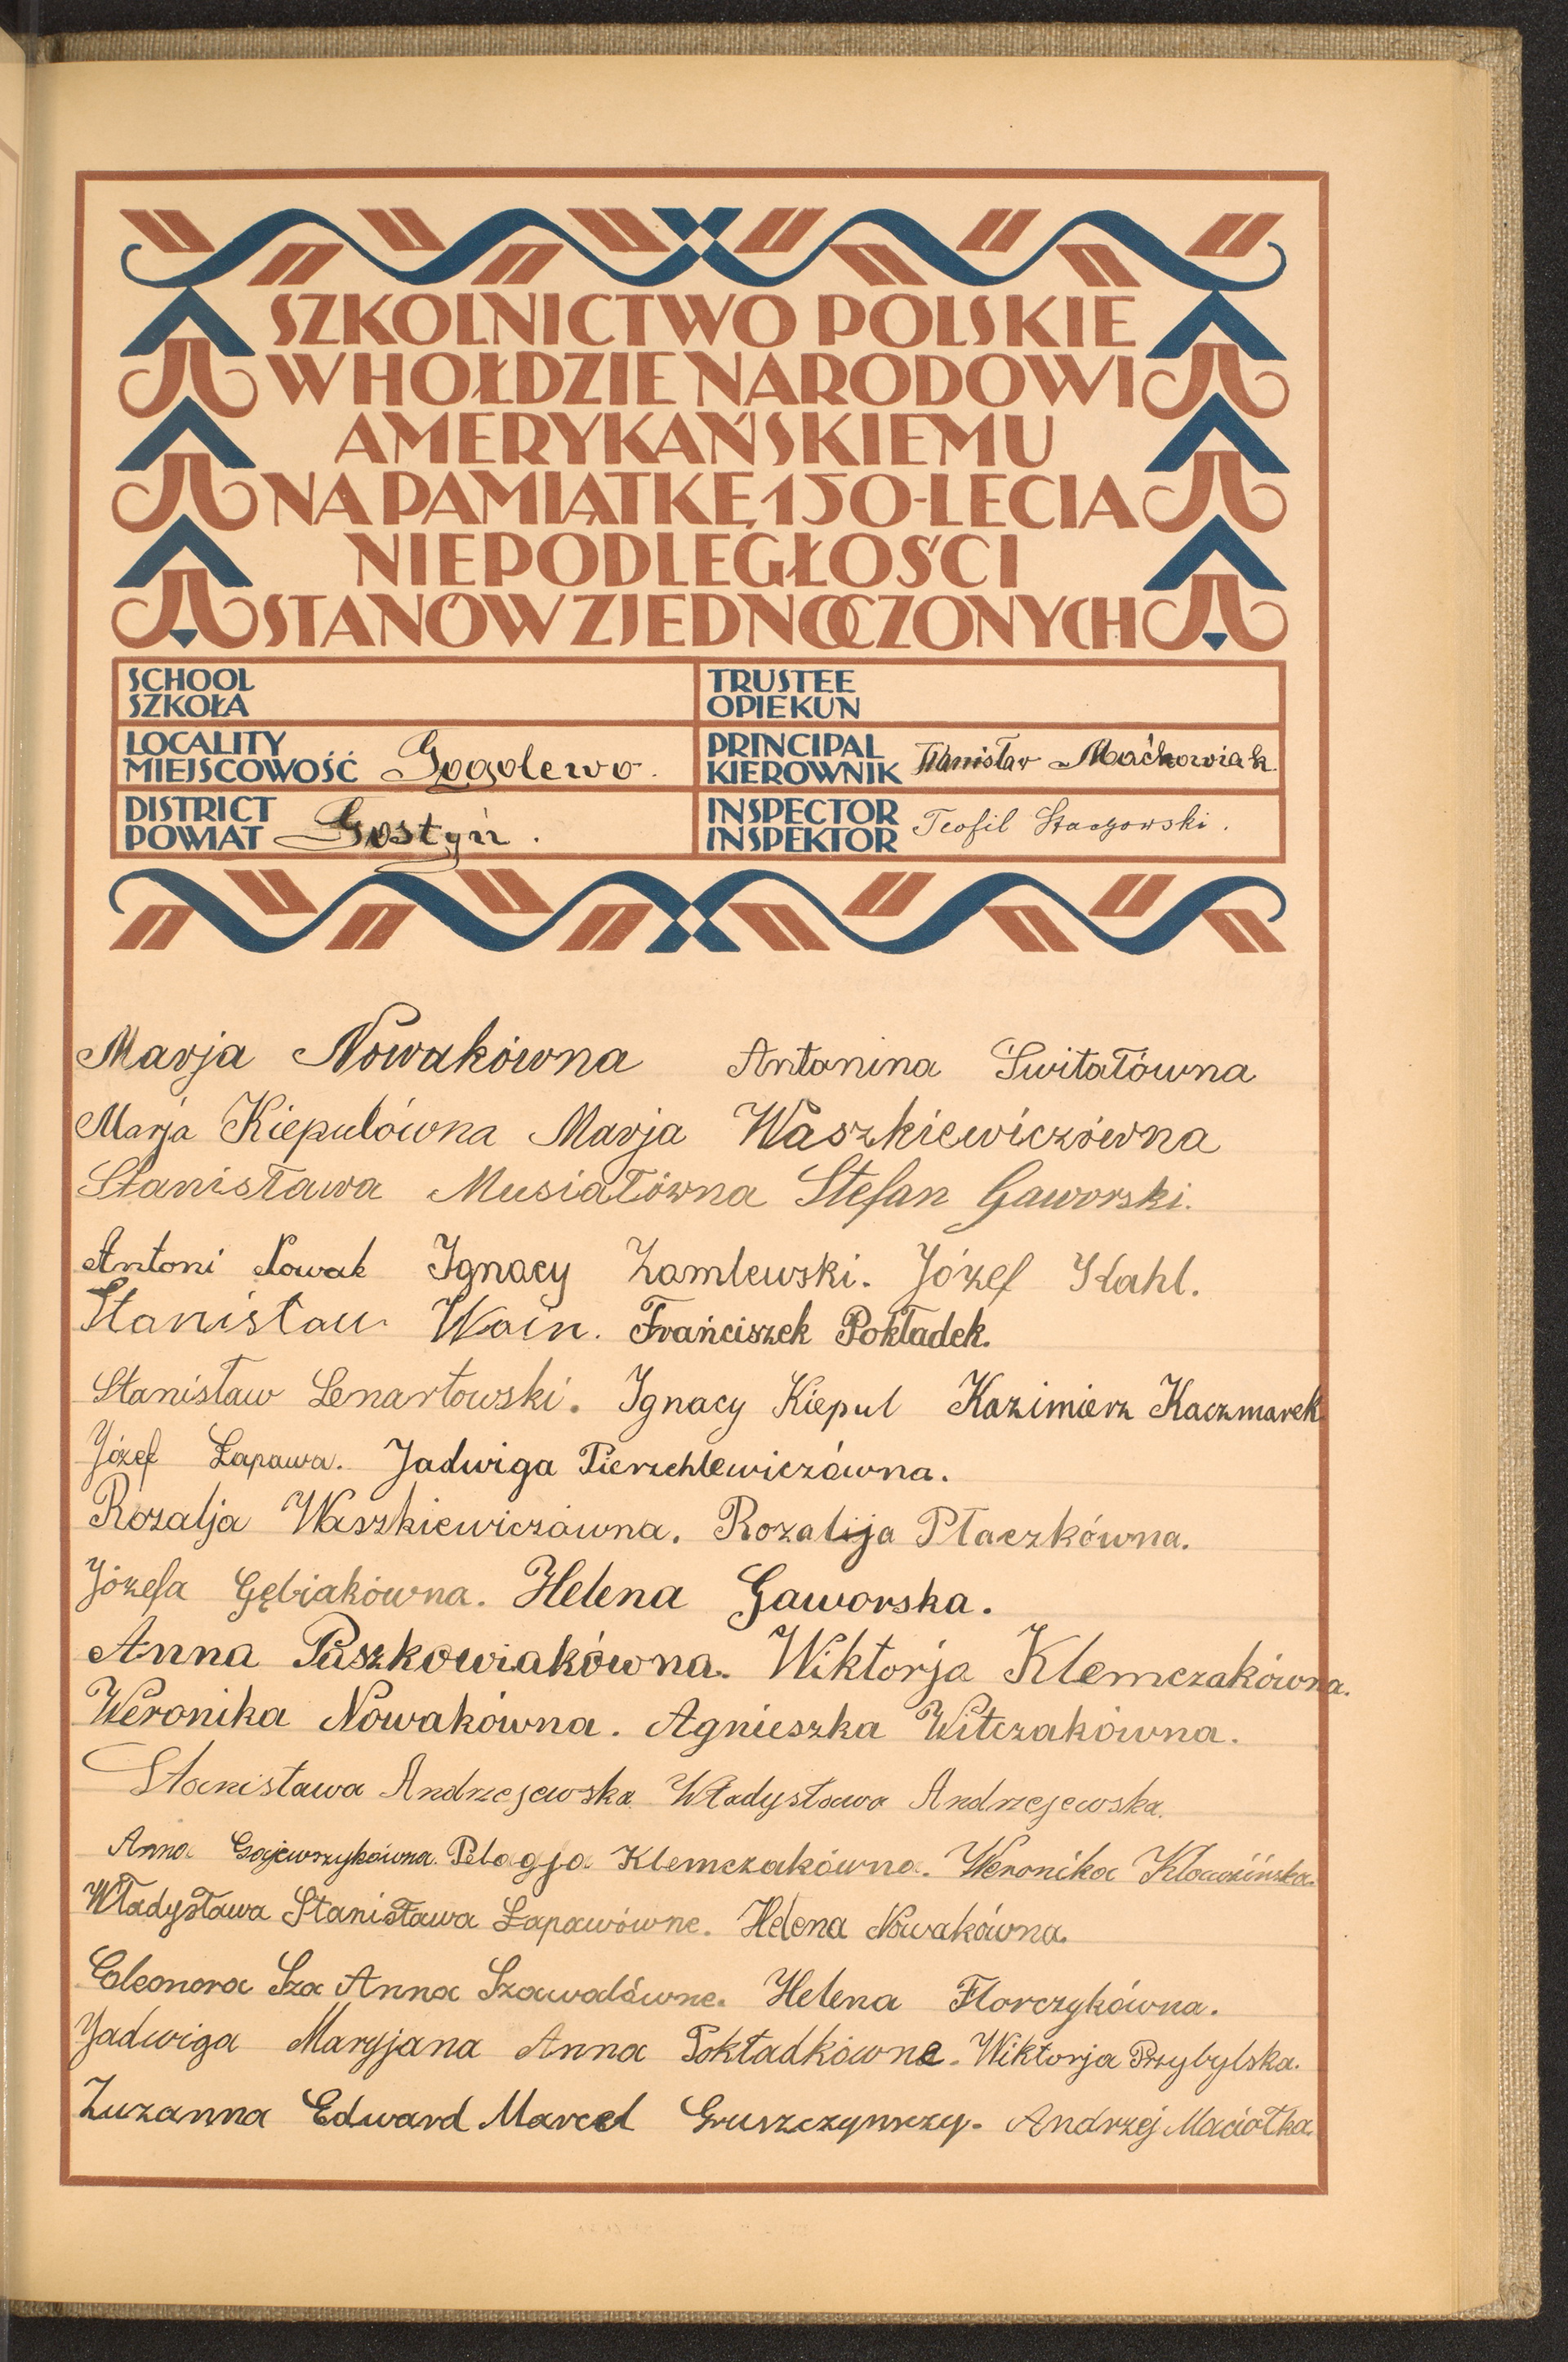 SZKOLNICTWO POLSKIE
W HOŁDZIE NARODOWI
AMERYKAŃSKIEMU
NA PAMIĄTKĘ 150-LECIA
NIEPODLEGŁOŚCI
STANÓW ZJEDNOCZONYCH
SCHOOL
SZKOŁA
TRUSTEE
OPIEKUN
LOCALITY
MIEJSCOWOŚĆ Gogolewo.
PRINCIPAL
KIEROWNIK Stanisław Maćkowiak
DISTRICT
POWIAT Gostyń.
INSPECTOR
INSPEKTOR Teofil Staczowski.
Marja Nowakówna Antonina Świtałówna
Marja Kiepulówna Marja Waszkiewiczówna
Stanisława Musiałówna Stefan Gaworski.
Antoni Nowak Ignacy Zamlewski. Józef Kahl.
Stanisław Woin. Frańciszek Pokładek.
Stanisław Lenartowski. Ignacy Kiepul Kazimierz Kaczmarek
Józef Łapawa. Jadwiga Pierzchlewiczówna.
Rozalja Waszkiewiczówna. Rozalija Płaczkówna.
Józefa Gębiakówna. Helena Gaworska.
Anna Paszkowiakówna. Wiktorja Klemczakówna.
Weronika Nowakówna. Agnieszka Witczakówna.
Stanisława Andrzejewska Władysława Andrzejewska.
Anna Gajewszykówna. Pelagja Klemczakówna. Weronika
Władysława Stanisława Łapawówne. Helena Nowakówna.
Eleonora Sza Anna Szawalówne. Helena Florczykówna.
Jadwiga Maryjana Anna Pokładkówne. Wiktorja Przybylska.
Zuzanna Edward Marcel Gruszczynszy. Andrzej Maciołka.